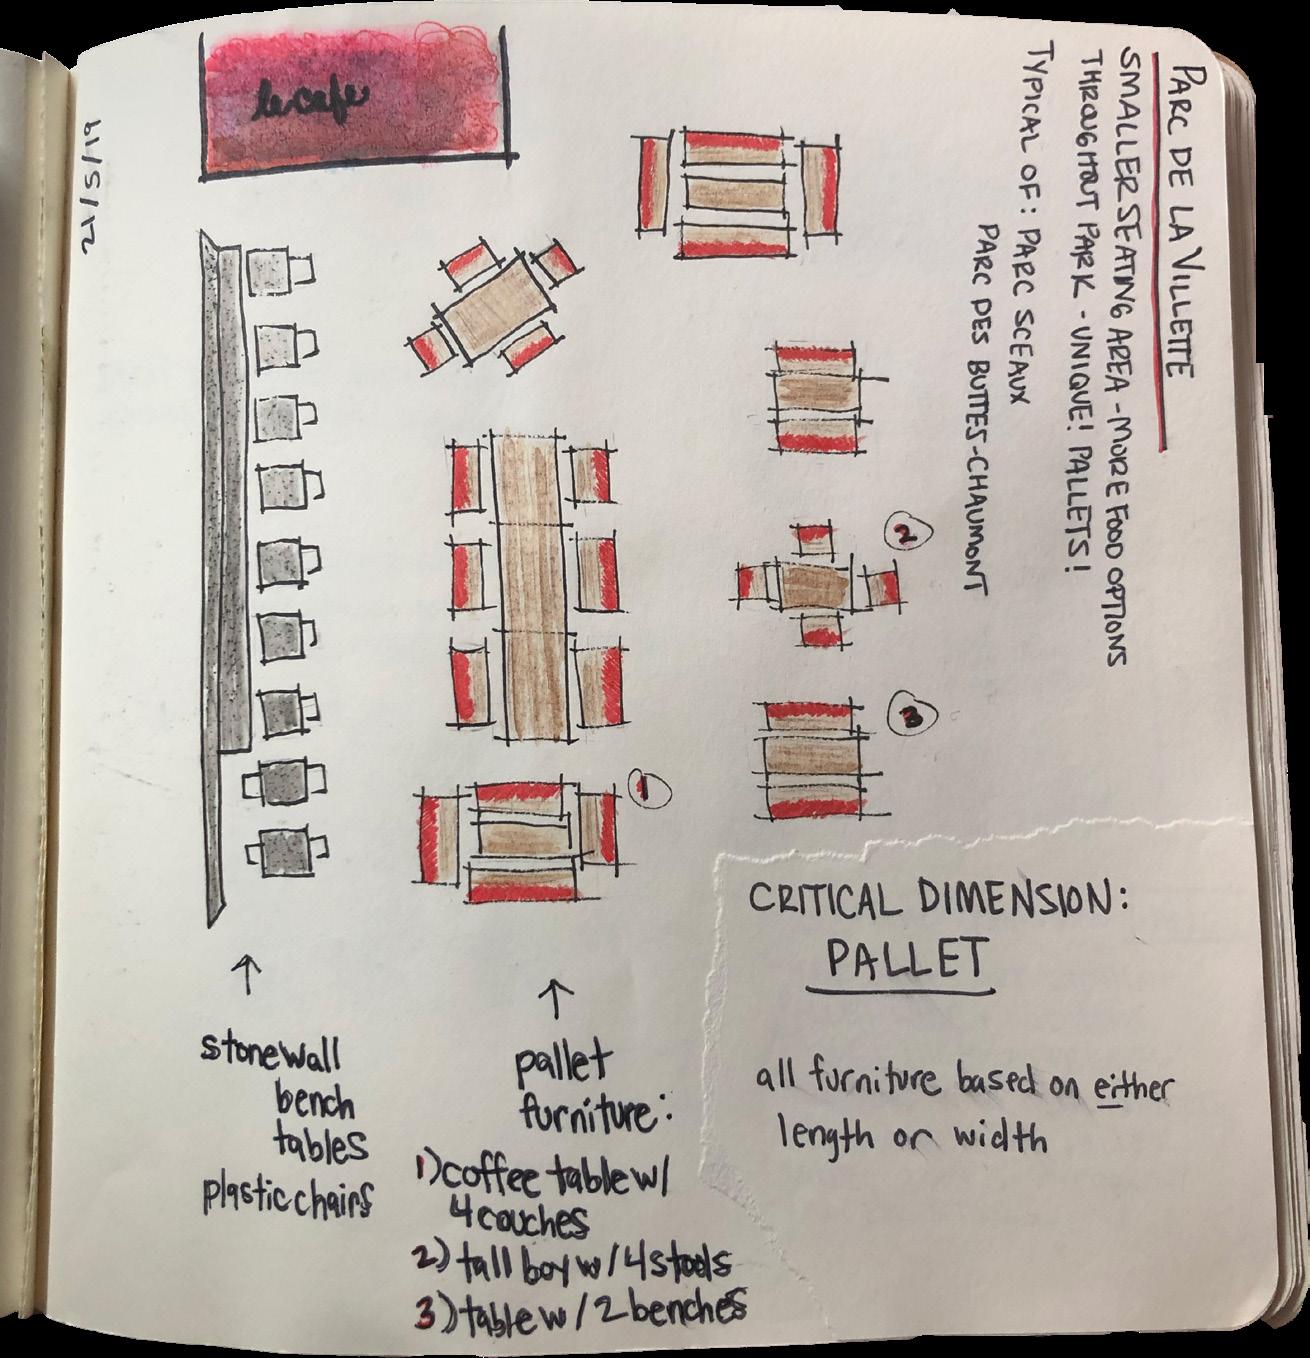 PARC DE LA VILLETTE
SMALLER SEATING AREA - MORE FOOD OPTIONS
THROUGHOUT PARK - UNIQUE! PALLETS!
TYPICAL OF: PARC SCEAUX
PARC DES BUTTES-CHAUMONT
le cafe
21/5/19
2
3
1
CRITICAL DIMENSION:
PALLET
all furniture based on either
length or width
stone wall
bench
tables
plastic chairs
pallet
furniture:
1) coffee table w/
4 couches
2) tall boy w/ 4 stools
3) table w/ 2 benches